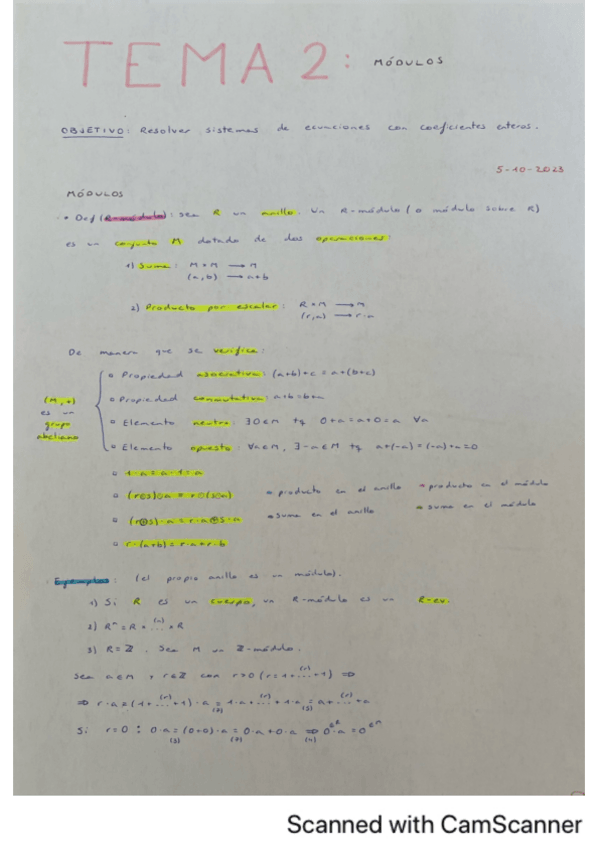 TEMA 2: MÓDULOS
OBJETIVO: Resolver sistemas de ecuaciones con coeficientes enteros.
5-10-2023
MÓDULOS
• Def (R-módulo): Sea R un anillo. Un R-módulo (o módulo sobre R)
es un conjunto M dotado de dos operaciones:
1) Suma: M × M → M
(a,b) → a+b
2) Producto por escalar: R × M → M
(r,a) → r·a
De manera que se verifica:
(M,+) es un grupo abeliano
Propiedad asociativa: (a+b)+c = a+(b+c)
Propiedad conmutativa: a+b=b+a
Elemento neutro: ∃0∈M tq 0+a=a+0=a ∀a
Elemento opuesto: ∀a∈M, ∃-a∈M tq a+(-a)=(-a)+a=0
1·a=a·1=a
(r⊙s)⊙a = r⊙(s⊙a)
• producto en el anillo • producto en el módulo
(r⊕s)·a=r·a⊕s·a
• suma en el anillo • suma en el módulo
r·(a+b)=r·a+r·b
Ejemplos: (el propio anillo es un módulo).
1) Si R es un cuerpo, un R-módulo es un R-ev.
2) Rⁿ = R × ⁽ⁿ⁾… × R
3) R=ℤ. Sea M un ℤ-módulo.
Sea a∈M y r∈ℤ con r>0 (r=1+ ⁽ʳ⁾… +1) ⇒
⇒ r·a=(1+ ⁽ʳ⁾… +1)·a = 1·a+ ⁽ʳ⁾… +1·a = a+ ⁽ʳ⁾… +a
Si r=0: 0·a = (0+0)·a = 0·a+0·a ⇒ 0·a=0
Scanned with CamScanner